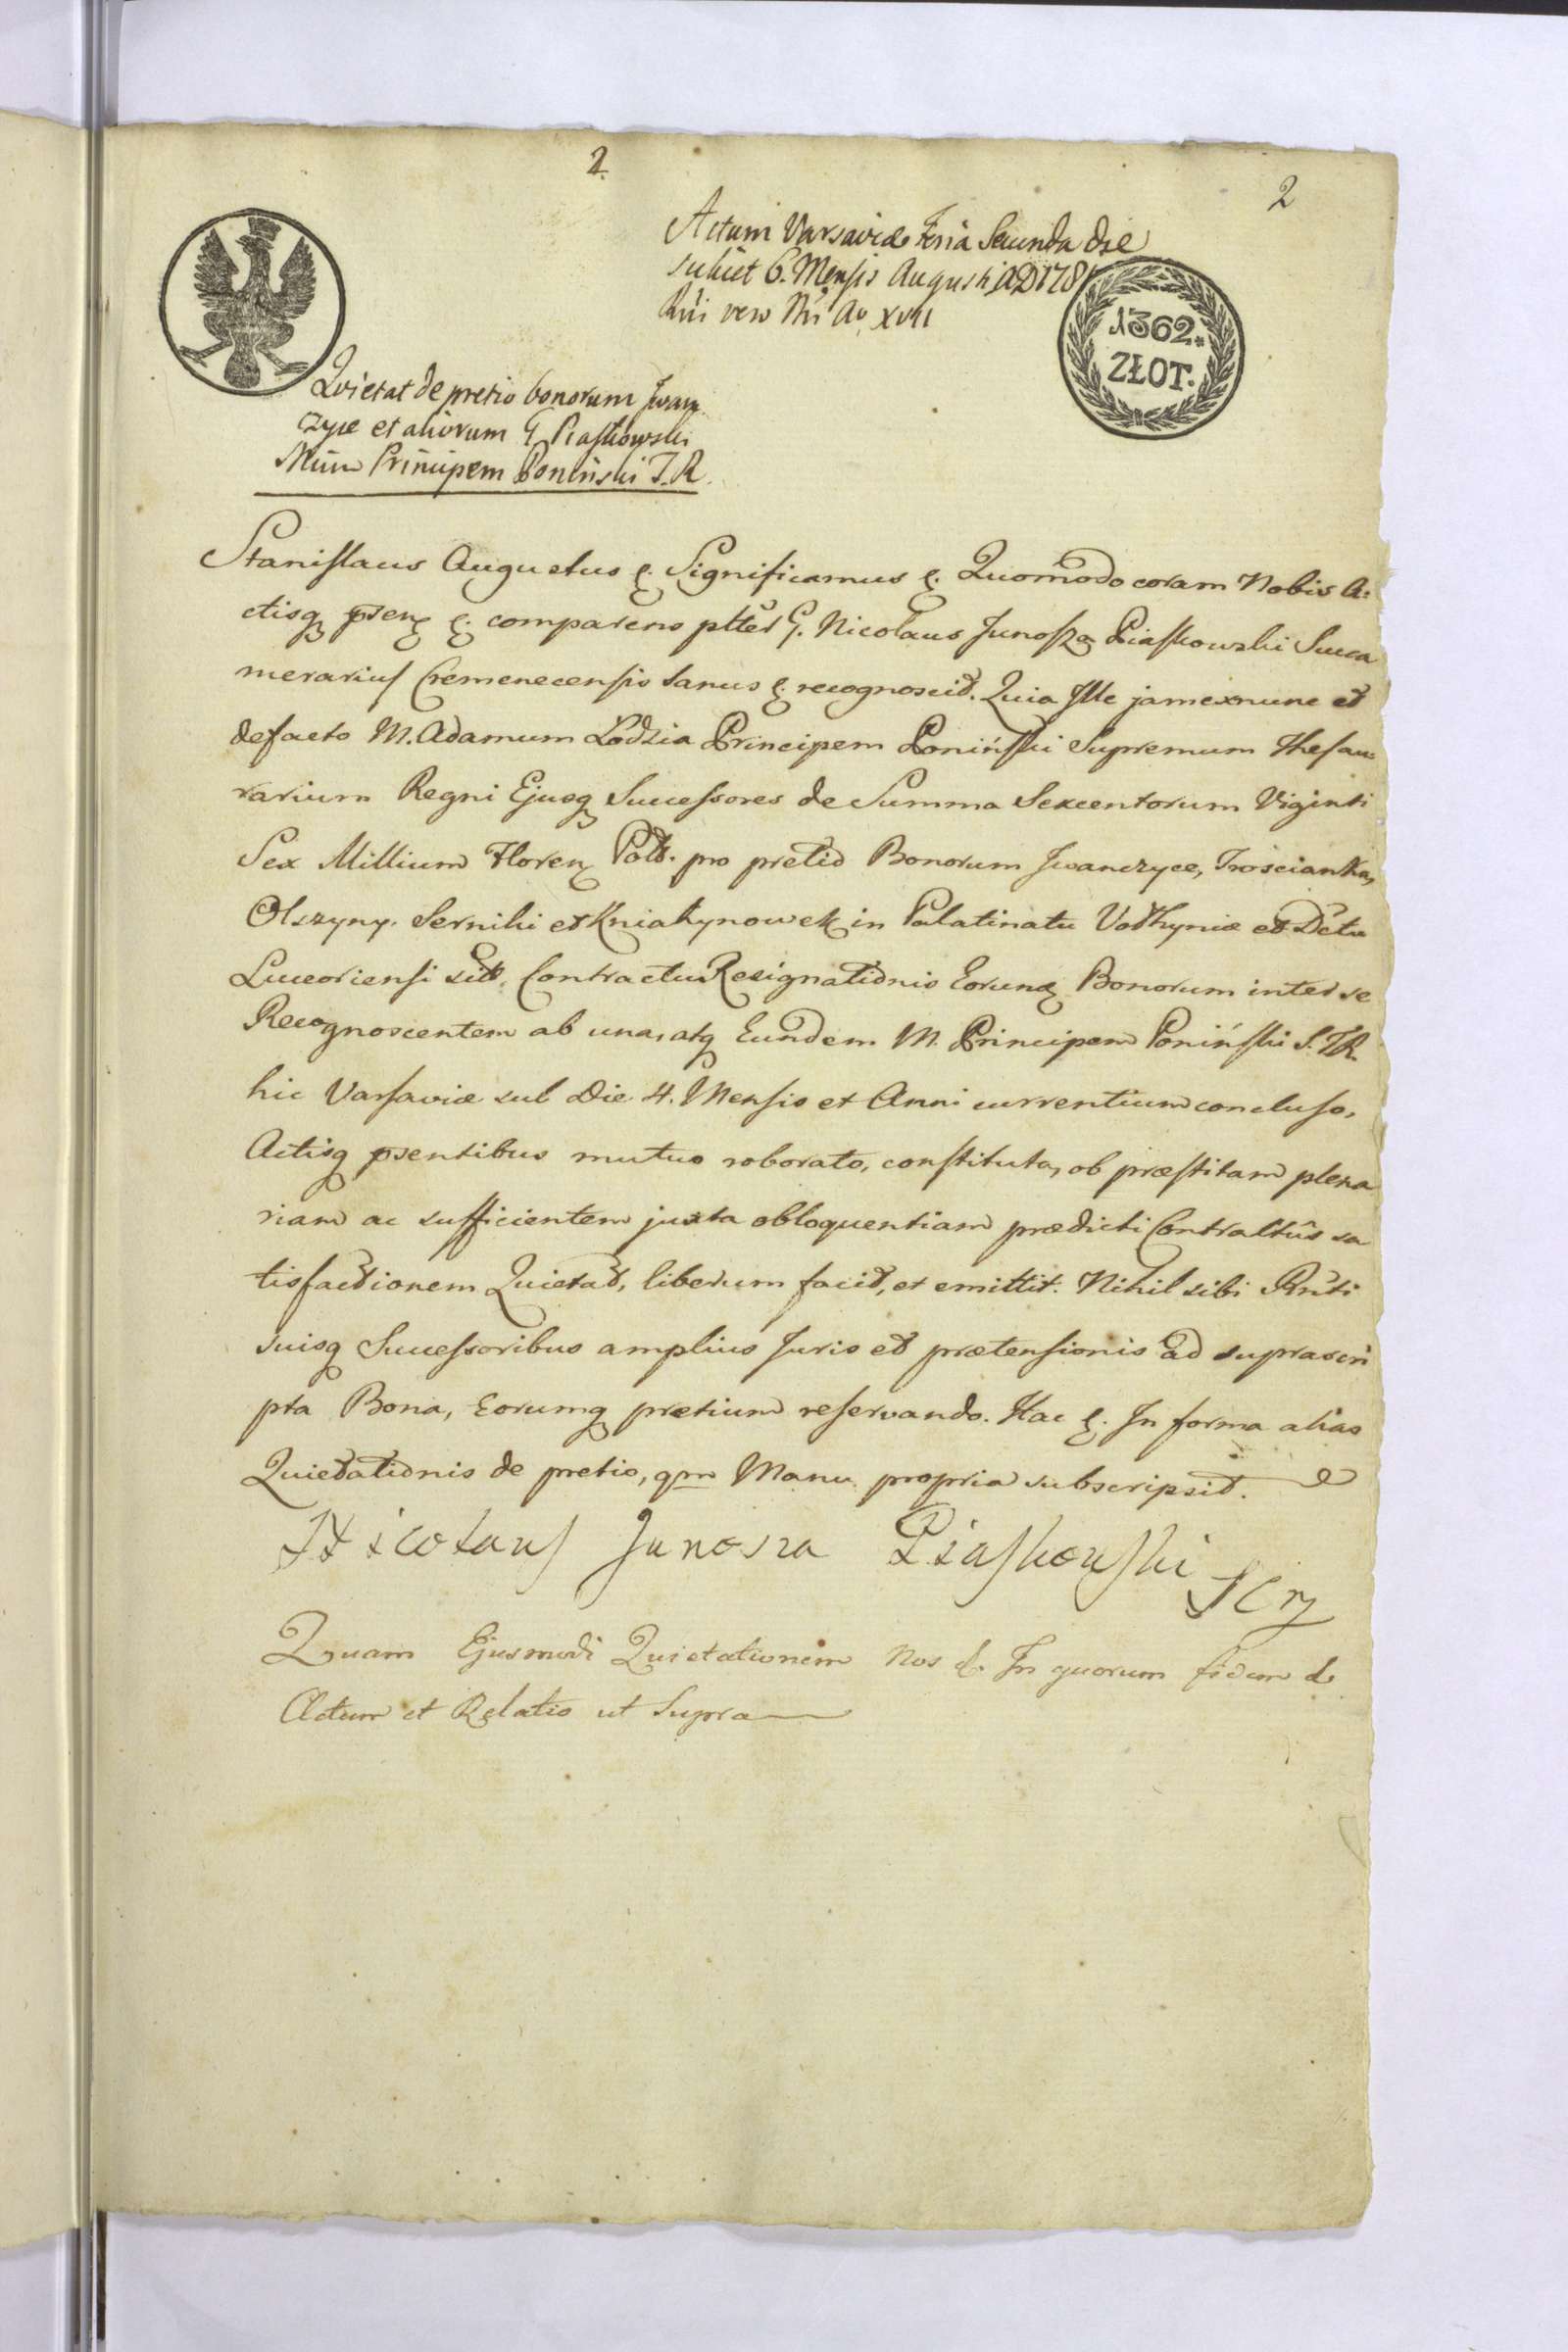 2.
2
Actum Varsaviæ Feria Secunda die
scilicet 6. Mensis Augusti AD 178
Rni vero Nri Ao XVII
1362.
ZŁOT.
Quietat de pretio bonorum Iwan
czyce et aliorum G Piaskowski
Mcum Principem Poninski T. R.
Stanislaus Augustus &. Significamus &. Quomodo coram Nobis A:
ctisq psen &. comparens pltter G. Nicolaus Junosza Piaskowski Succa
merarius Cremenecensis sanus &. recognoscit. Quia Ille jam ex nunc et
de facto M. Adamum Lodzia Principem Poniński Supremum Thesau:
rarium Regni Ejusq Successores de Summa Sexcentorum Viginti
Sex Millium Floren Pold. pro pretio Bonorum Iwanczyce, Trościanka,
Olszyny. Serniki et Kniahynowek in Palatinatu Volhyniæ et Dctu
Luceoriensi sit. Contractu Resignationis Eorund Bonorum inter se
Recognoscentem ab una, atq Eundem M. Principem Poniński S. T R.
hic Varsaviæ sub Die 4. Mensis et Anni currentium concluso,
Actisq psentibus mutuo roborato, constituta, ob præstitam plena
riam ac sufficientem juxta obloquentiam prædicti Contractûs sa
tisfactionem Quietat, liberum facit, et emittit. Nihil sibi Rnti
suisq Successoribus amplius Juris et prætensionis ad suprascri
pta Bona, Eorumq pretium reservando. Hac &. In forma alias
Quietationis de pretio, qm Manu propria subscripsit.
Nicolaus Junosza Piaskowski
Quam Ejusmodi Quietationem Nos &. In quorum fidem &
Actum et Relatio ut Supra